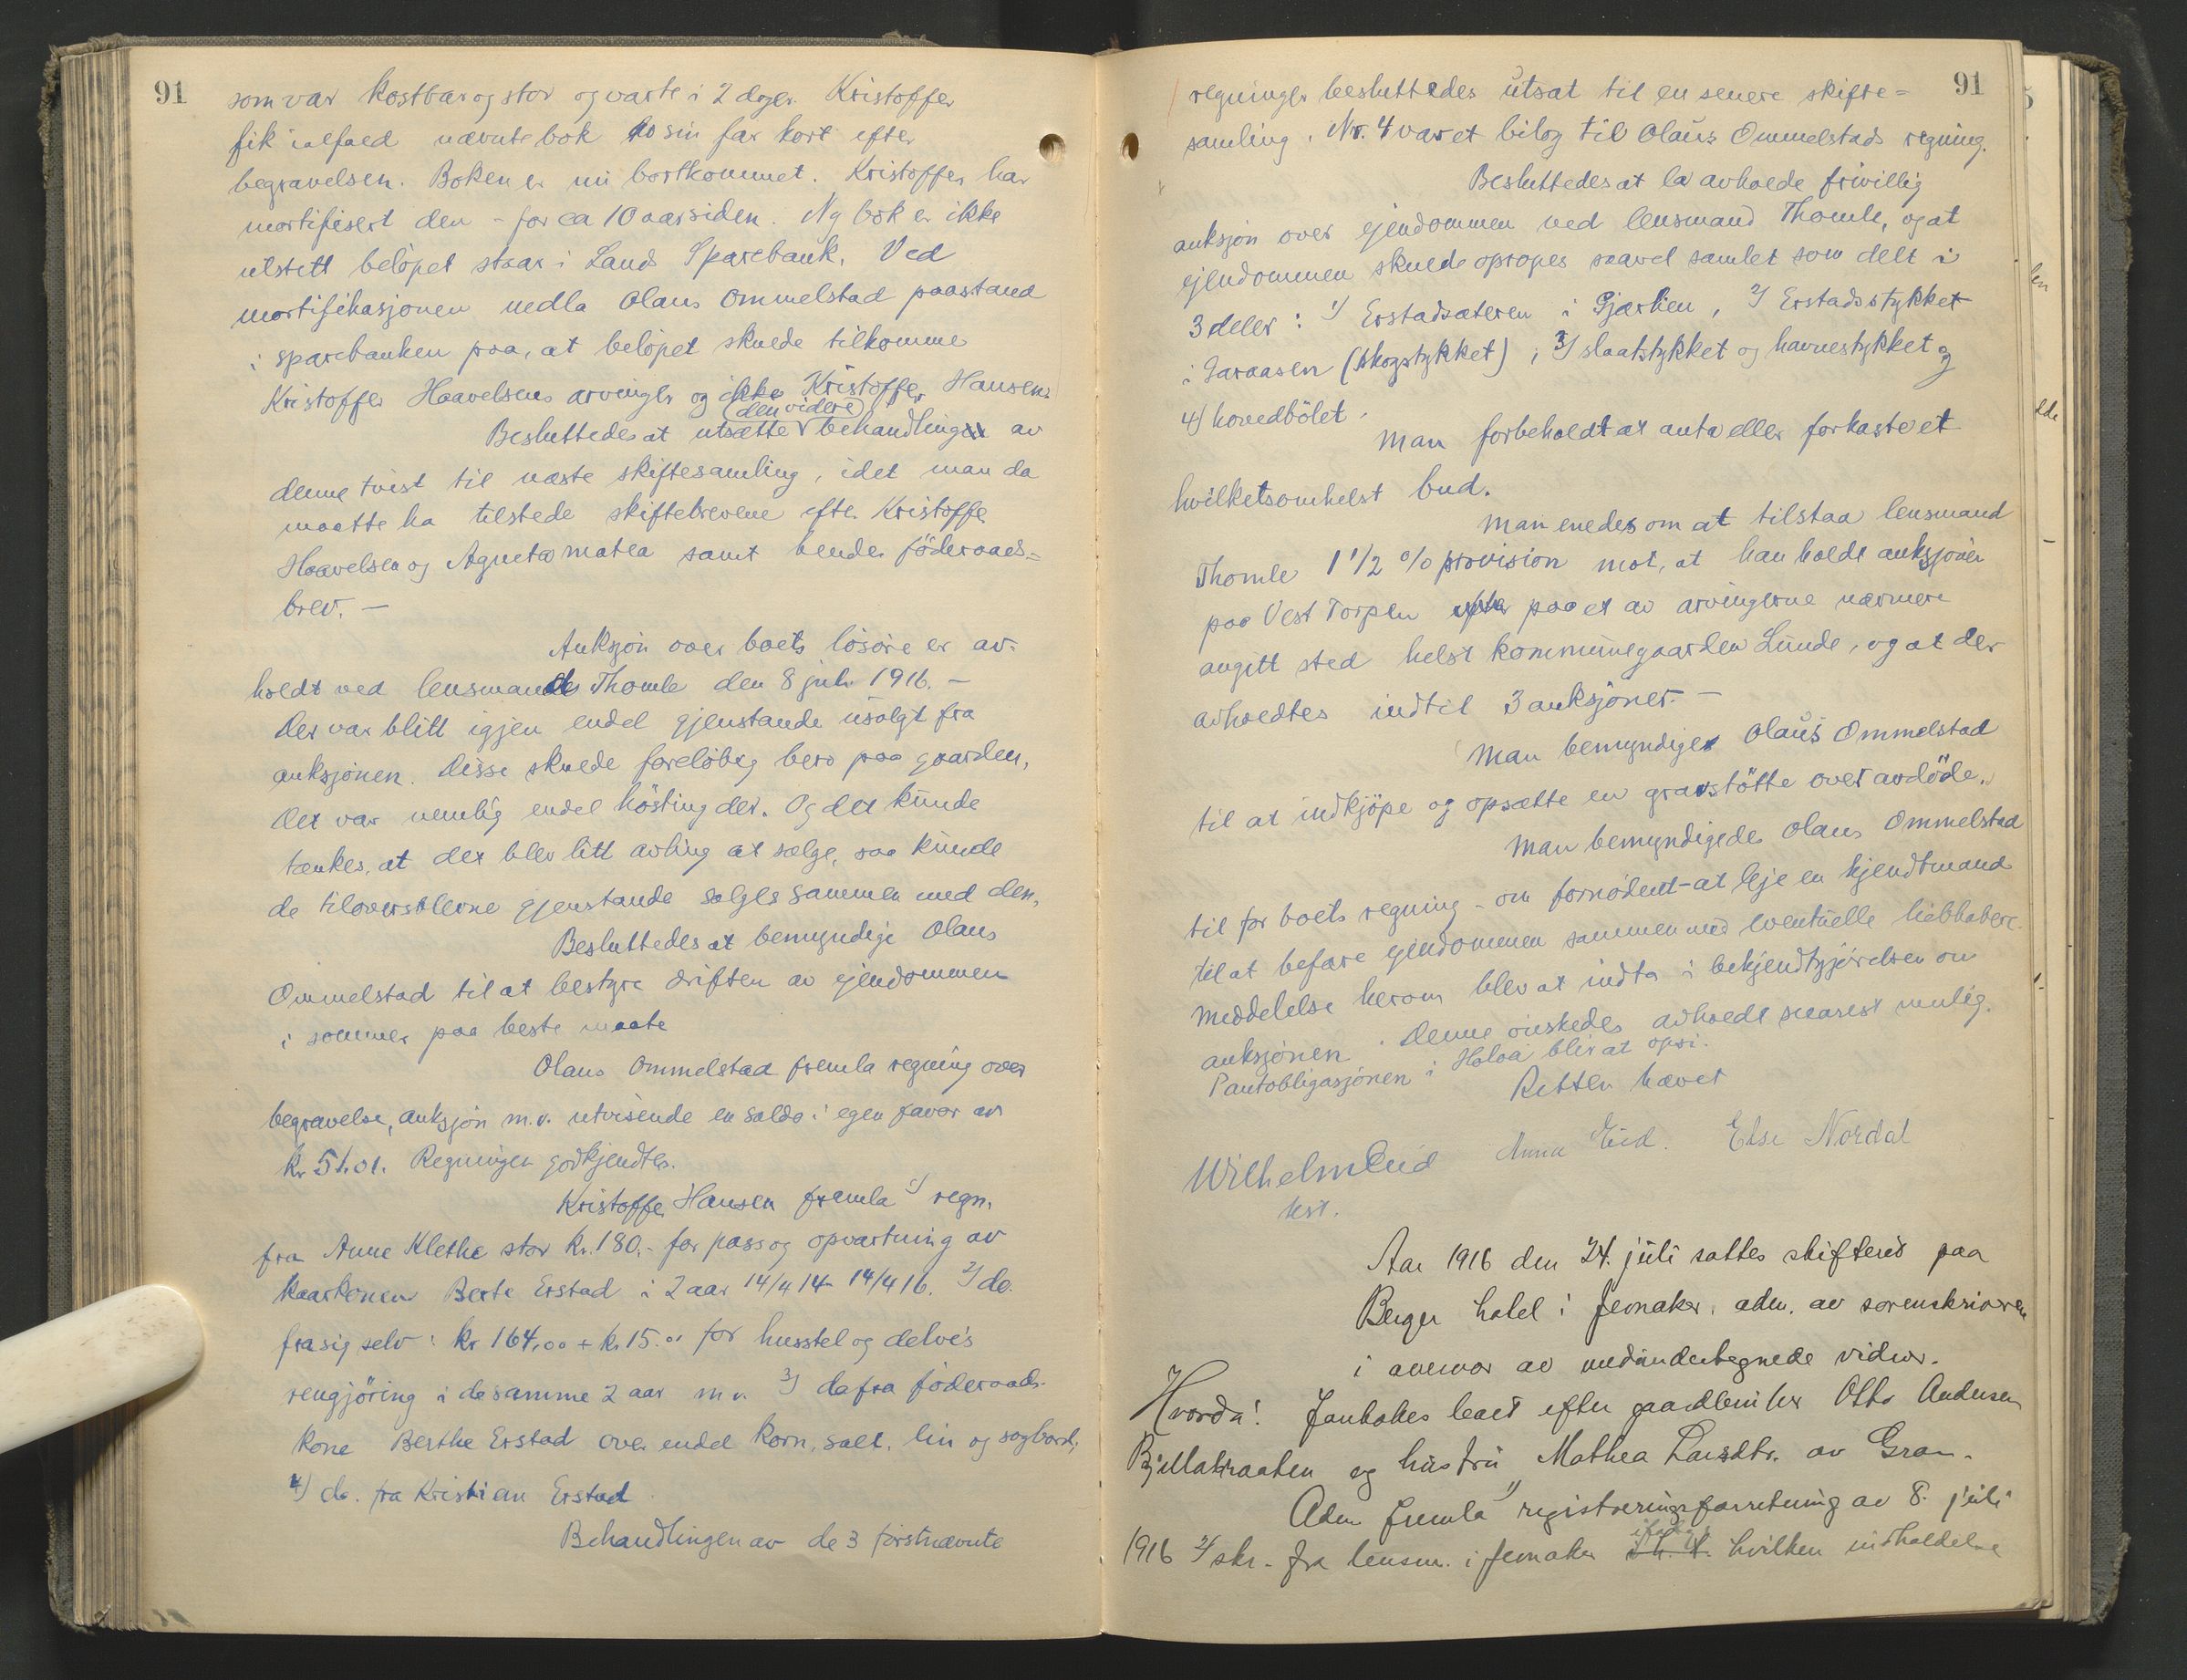 91
som var kostbar og stor og varte i 2 dager. Kristoffer
fik ialfald nævnte bok hos sin far kort efter
begravelsen. Boken er nu bortkommet. Kristoffer har
mortifisert den - for ca 10 aar siden. Ny bok er ikke
utstett beløpet staar i Lands Sparebank. Ved
mortifikasjonen nedla Olaus Ommelstad paastand
i sparebanken paa, at beløpet skulde tilkomme
Kristoffer Haavelsens arvinger og ikke Kristoffer Hansen.
(den videre)
Besluttedes at utsætte behandlingen av
denne tvist til næste skiftesamling, idet man da
maatte ha tilstede skiftebrevene efter Kristoffer
Haavelsen og Agneta Matea samt hendes föderaads=
brev. —
Auksjon over boets lösöre er av-
holdt ved lensmand Thomle den 8 juli 1916. —
Der var blitt igjen endel gjenstande usolgt fra
auksjonen. Disse skulde foreløbig bero paa gaarden,
Det var nemlig endel hösting der. Og det kunde
tænkes, at det blev litt avling at sælge, saa kunde
de tiloversblevne gjenstande sælges sammen med den.
Besluttedes at bemyndige Olaus
Ommelstad til at bestyre driften av ejendommen
i sommer paa beste maate
Olaus Ommelstad fremla regning over
begravelse, auksjon m.v. utvisende en saldo i egen favør av
kr 51.01. Regningen godkjendtes.
Kristoffer Hansen fremla 1) regn.
fra Anne Klethe stor kr. 180.- for pass og opvartning av
kaarkonen Berte Erstad i 2 aar 14/4 14 - 14/4 16. 2) do.
fra sig selv: kr 164,00 + kr 15.00 for husstel og delvis
rengjöring i de samme 2 aar m.v. 3) do fra föderaads-
kone Berthe Erstad over endel korn, salt, lin og sagbord,
4) do. fra Kristian Erstad
Behandlingen av de 3 förstnævnte
91
regninger besluttedes utsat til en senere skifte=
samling. Nr. 4 var et bilag til Olaus Ommelstads regning.
Besluttedes at la avholde frivillig
auksjon over ejendommen ved lensmand Thomle, og at
ejendommen skulde opropes saavel samlet som delt i
3 deler: 1) Erstadsæteren i Gjærlien, 2) Erstadsstykket
i Garaasen (skogstykket), 3) slaatstykket og havnestykket og
4) hovedbölet.
Man forbeholdt at anta eller forkaste et
hvilketsomhelst bud.
Man enedes om at tilstaa lensmand
Thomle 1 1/2 % provision mot, at han holdt auksjonen
paa Vest Torpen paa et av arvingerne nærmere
angitt sted helst kommunegaarden Lunde, og at der
avholdtes indtil 3 auksjoner. —
Man bemyndiget Olaus Ommelstad
til at indkjöpe og opsætte en gravstötte over avdöde.
Man bemyndigedes Olaus Ommelstad
til for boets regning - om fornødent - at leje en kjendtmand
til at befare ejendommen sammen med eventuelle liebhabere.
Meddelelse herom blev at indta i bekjendtgjörelsen om
auksjonen. Denne önskedes avholdt snarest mulig.
Pantobligasjonen i Haloa blir at opsi.
Retten hævet
Wilhelm Eid Anna Eid. Else Nordal
tst.
Aar 1916 den 24. juli sattes skifteret paa
Berger hotel i Jevnaker, adm. av sorenskriveren
i overvær av medundertegnede vidner.
Hvorda: Foretokes boet efter gaardbruker Otto Andersen
Bjellabraaten og hustru Mathea Larsdtr. av Gran.
Adm fremla 1) registreringsforretning av 8. juli
1916 2) skr. fra lensm. i Jevnaker hvilken indholdelse